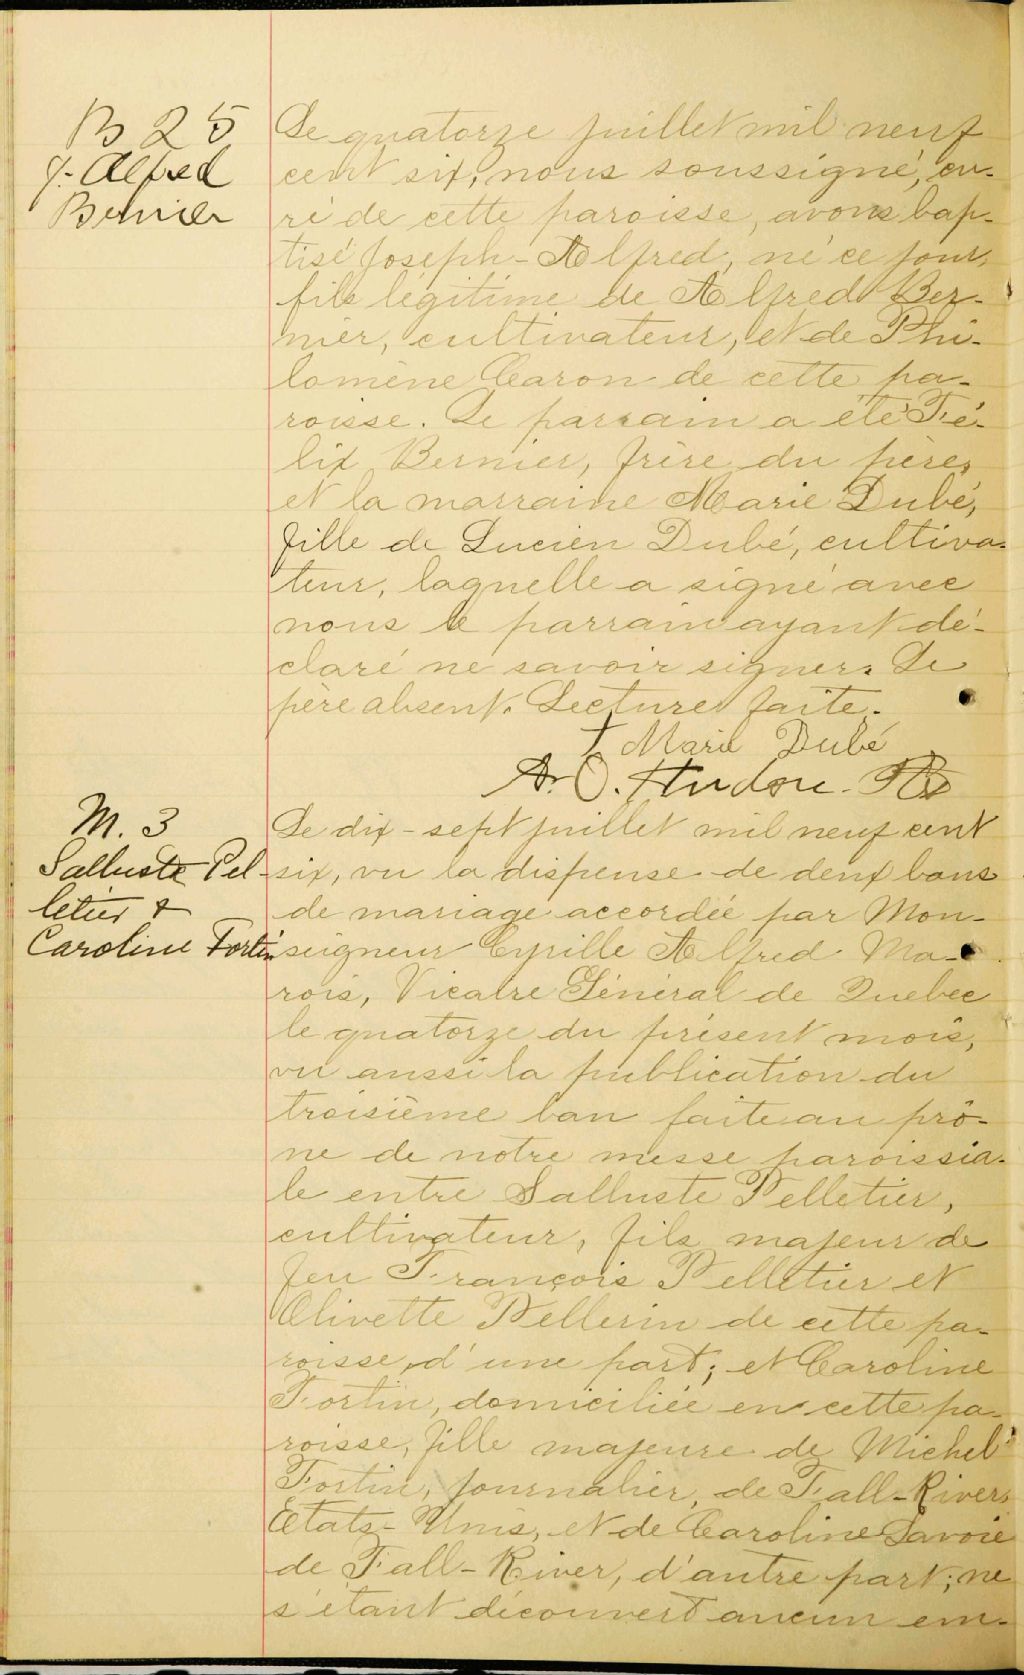 B 25
J. Alfred
Bernier
Le quatorze juillet mil neuf
cent six, nous soussigné, cu-
ré de cette paroisse, avons bap-
tisé Joseph-Alfred, né ce jour,
fils légitime de Alfred Ber-
nier, cultivateur, et de Phi-
lomène Caron de cette pa-
roisse. Le parrain a été Fé-
lix Bernier, frère du père,
et la marraine Marie Dubé,
fille de Lucien Dubé, cultiva-
teur, laquelle a signé avec
nous le parrain ayant dé-
claré ne savoir signer. Le
père absent. Lecture faite.
† Marie Dubé
A. O. Hudon Ptre
M. 3
Salluste Pel-
letier &
Caroline Fortin
Le dix-sept juillet mil neuf cent
six, vu la dispense de deux bans
de mariage accordée par Mon-
seigneur Cyrille Alfred Ma-
rois, Vicaire Général de Quebec
le quatorze du présent mois,
vu aussi la publication du
troisième ban faite au prô-
ne de notre messe paroissia-
le entre Salluste Pelletier,
cultivateur, fils majeur de
feu François Pelletier et
Olivette Pellerin de cette pa-
roisse, d'une part; et Caroline
Fortin, domiciliée en cette pa-
roisse, fille majeure de Michel
Fortin, journalier, de Fall-River,
Etats-Unis, et de Caroline Savoie
de Fall-River, d'autre part; ne
s'étant découvert aucun em-